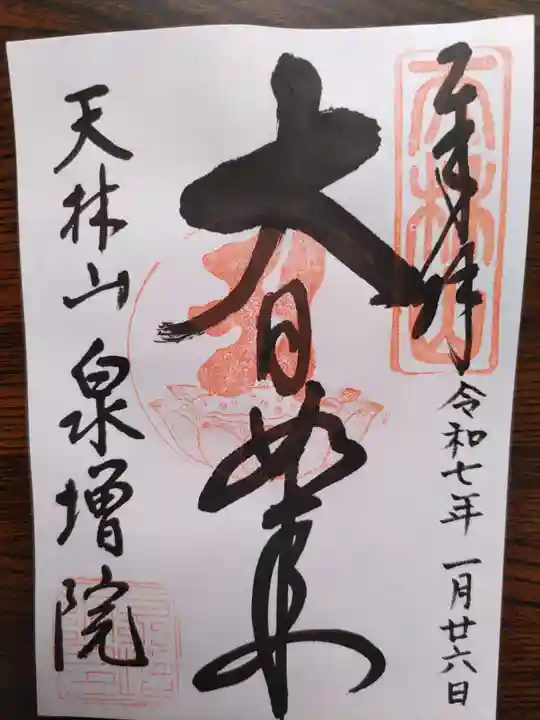 奉拝
天林山
令和七年 一月廿六日
大日如来
天林山 泉増院